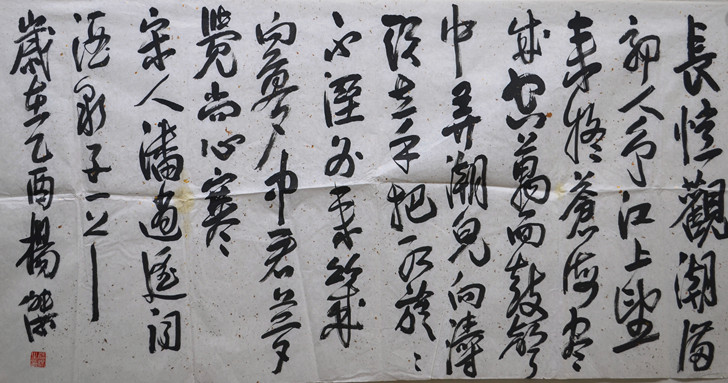 長憶觀潮滿
郭人争江上望
来疑蒼海尽
成空萬面鼓聲
中弄潮兒向濤
頭立手把紅旗〻
不溼別来幾
向夢中看夢
覺尚心寒
宋人潘逍遥詞
酒泉子
歲在乙酉楊